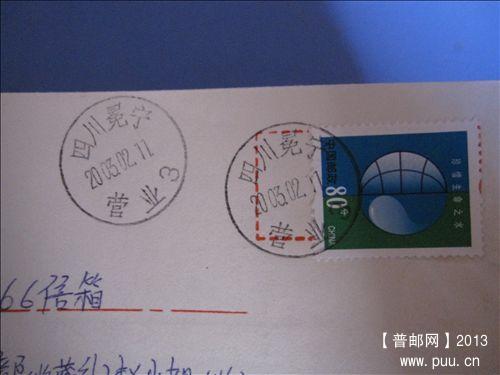 四川冕宁
2003.02.11
营业 3
四川冕宁
2003.02.11
营业
中国邮政
80分
CHINA
珍惜生命之水
66信箱
【普邮网】2013
www.puu.cn